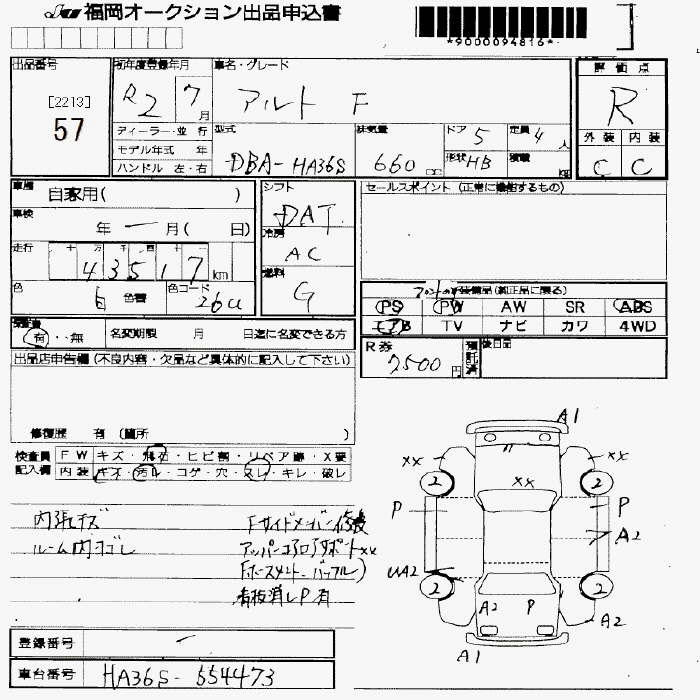 福岡オークション出品申込書
*9000094816*
出品番号
[2213]
57
初年度登録年月
R2 7月
ディーラー・並 行
モデル年式 年
ハンドル 左・右
車名・グレード
アルト F
型式
DBA-HA36S
排気量
660 cc
ドア 5
定員 4人
形状 HB
積載 kg
評価点
R
外装 内装
C C
車歴
自家用( )
車検
年 ー 月( 日)
走行
十 万 千 百 十
43517 km
色
白 色替
色コード
26U
シフト
DAT
冷房
AC
燃料
G
セールスポイント (正常に機能するもの)
装備品(純正品に限る)
PS PW AW SR ABS
エアB TV ナビ カワ 4WD
保証書
有・無
名変期限 月 日迄に名変できる方
R券
7500円
預託済
後日品
出品店申告欄 (不良内容・欠品など具体的に記入して下さい)
修復歴 有 (箇所 )
検査員
記入欄
FW キズ・飛石・ヒビ割・リペア跡・X要
内装 キズ・汚レ・コゲ・穴・スレ・キレ・破レ
内張キズ
ルーム内ヨゴレ
Fサイドメンバー修復
アッパーコアロアサポートxx
看板消しP有
登録番号
ー
車台番号
HA36S-554473
A1
xx xx
xx
2 2
P P
A2
UA2
2 2
A2 P A2
A1